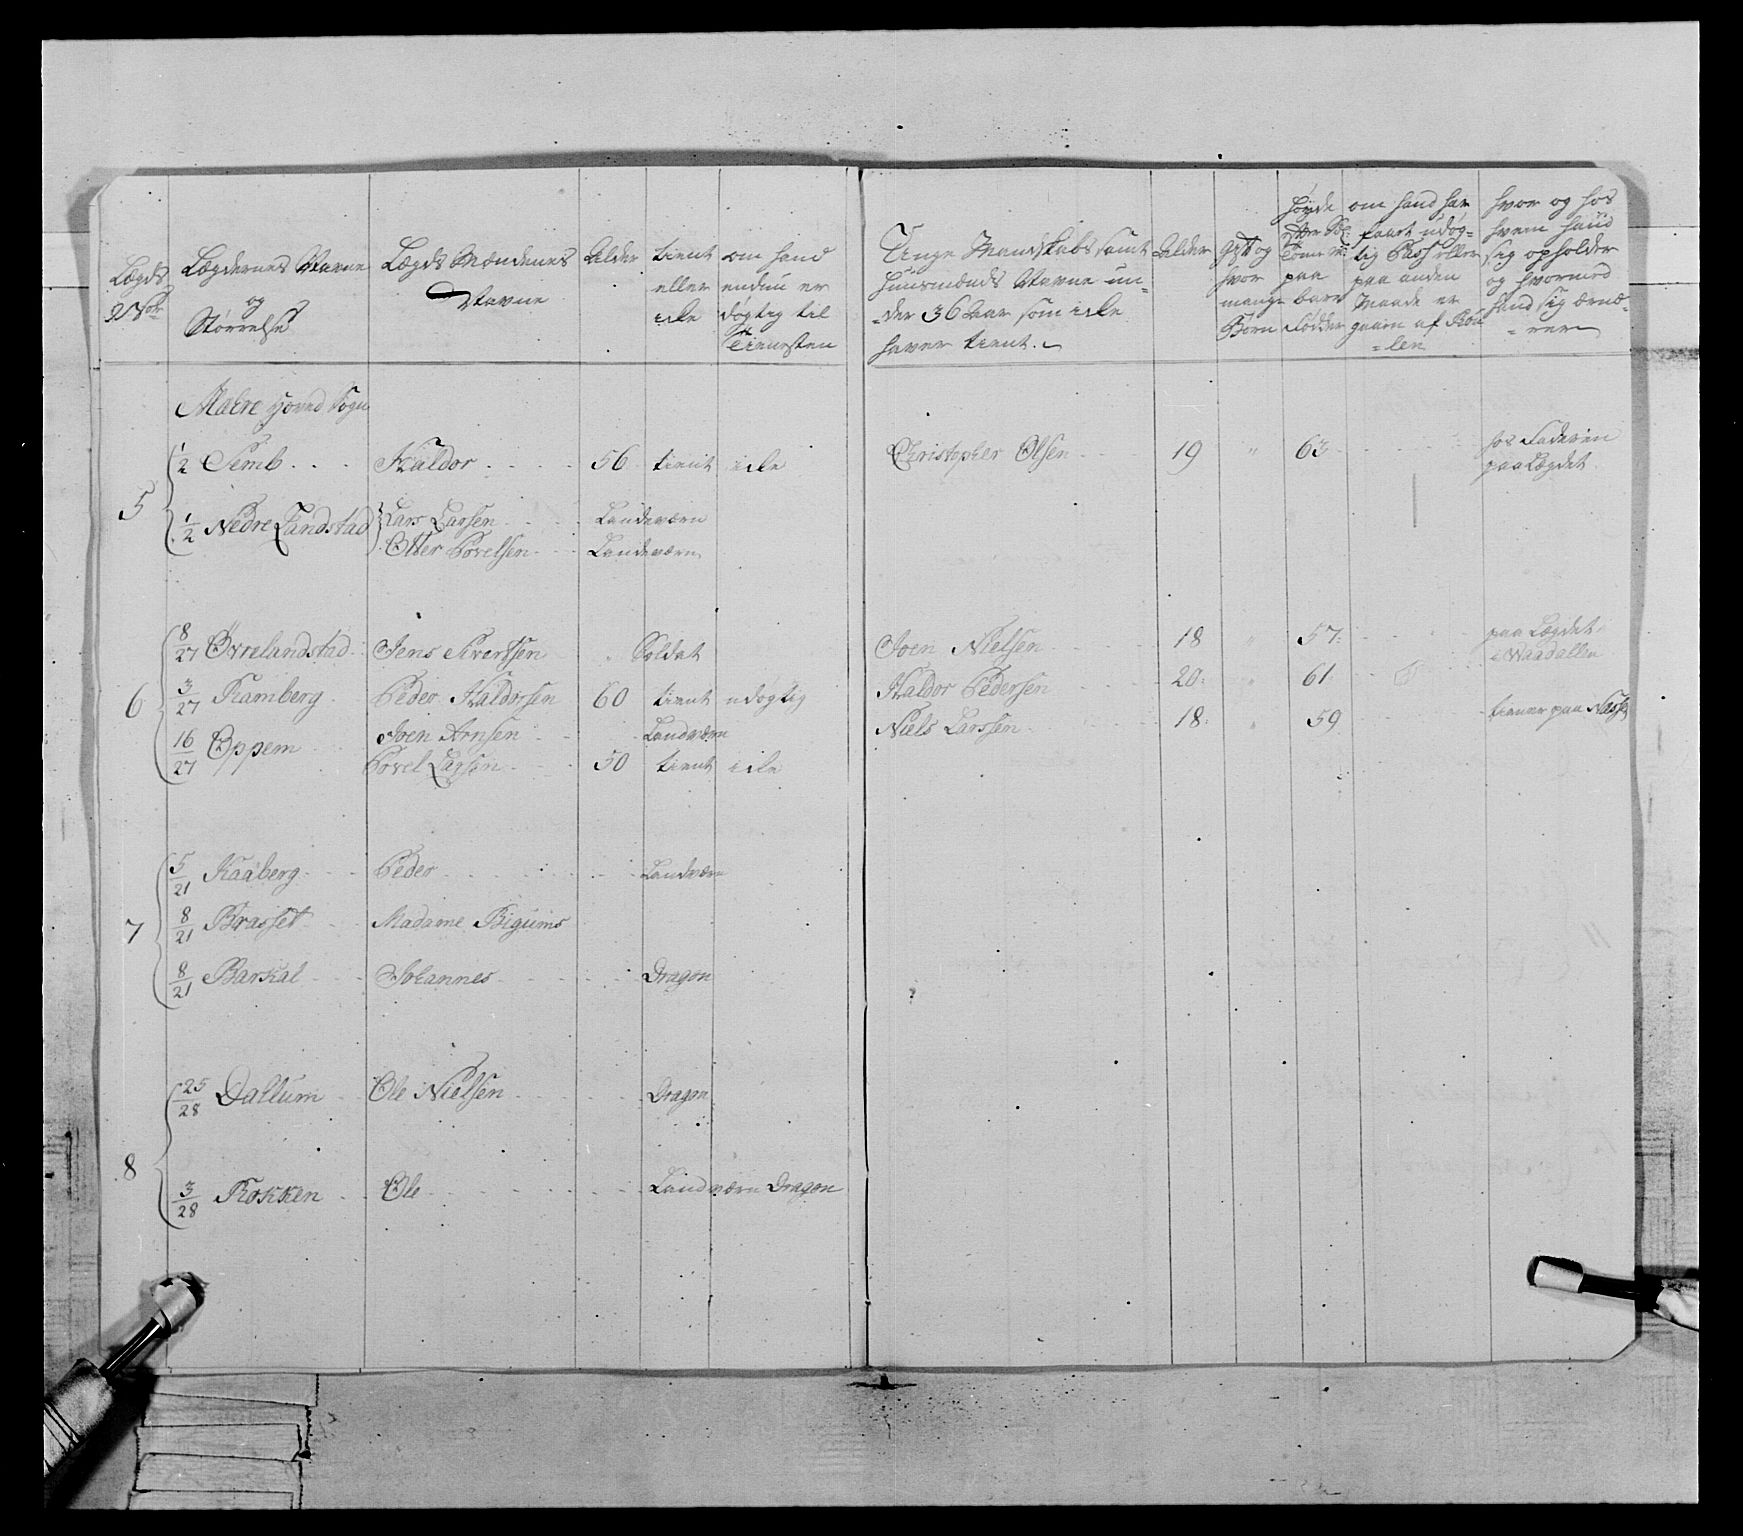 Lægds
No
Lægdernes Navne
og
Størrelse
Lægds Mændenes
Navne
Alder
tient
eller
icke
om hand
endnu er
døgtig til
Tienesten
Unge Mandskabs samt
Huusmænds Navne un-
der 36 Aar som icke
haver tient.
Alder
Gift og
hvor
mange
Børn
høyde
paa
bare
Fødder
om hand har
faaet udøg-
tig Pass eller
paa anden
Maade er
gaaen af Rol-
len
hvor og hos
hvem hand
sig opholder
og hvormed
hand sig ernæ-
rer
Mære Hoved Sogn
5
1/2 Semb . . . Haldor . . . . 56 tient icke Christopher Olsen 19 " 63 hos Faderen
paa Lægdet
1/2 Nedre Landstad Lars Larsen Landeværn
Otter Povelsen Landeværn
6
8/27 Øvrelandstad Jens Sivertsen " Soldat Joen Nielsen 18 " 57 paa Lægdet
3/27 Ramberg Peder Haldorsen 60 tient udøgtig Haldor Pedersen 20 " 61
16/27 Oppem Joen Arnsen Landværn Niels Larssen 18 " 59 tiener paa
Povel Larsen 50 tient icke
7
5/21 Kaaberg Peder Landværn
8/21 Brasset Madame Bigums
8/21 Barhal Johannes Dragon
8
25/28 Dallum Ole Nielsen Dragon
3/28 Rokken Ole Landværn Dragon